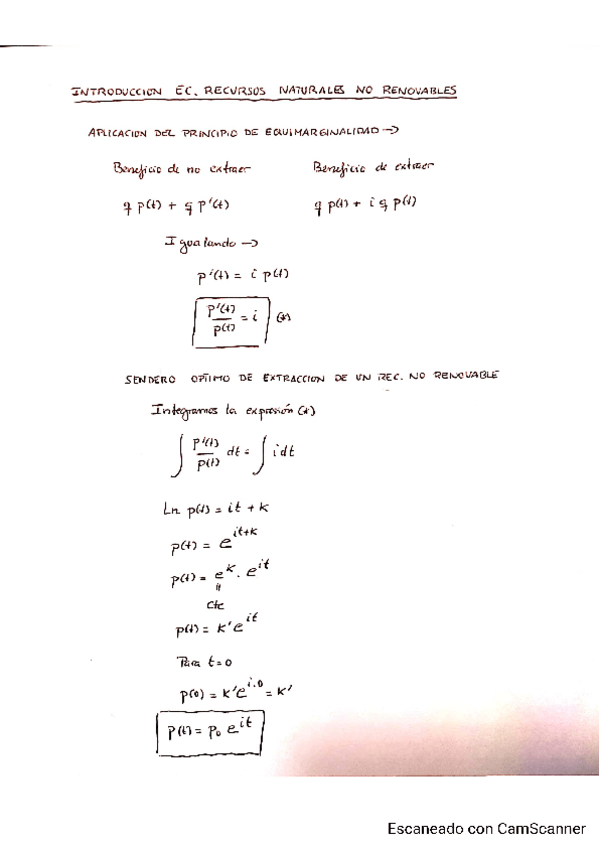 INTRODUCCION EC. RECURSOS NATURALES NO RENOVABLES
APLICACION DEL PRINCIPIO DE EQUIMARGINALIDAD →
Beneficio de no extraer Beneficio de extraer
q p(t) + q p'(t) q p(t) + i q p(t)
Igualando →
p'(t) = i p(t)
p'(t)/p(t) = i (*)
SENDERO OPTIMO DE EXTRACCION DE UN REC. NO RENOVABLE
Integramos la expresión (*)
∫ p'(t)/p(t) dt = ∫ i dt
Ln p(t) = it + k
p(t) = e^{it+k}
p(t) = e^k · e^{it}
cte
p(t) = k' e^{it}
Para t=0
p(0) = k' e^{i·0} = k'
p(t) = p₀ e^{it}
Escaneado con CamScanner